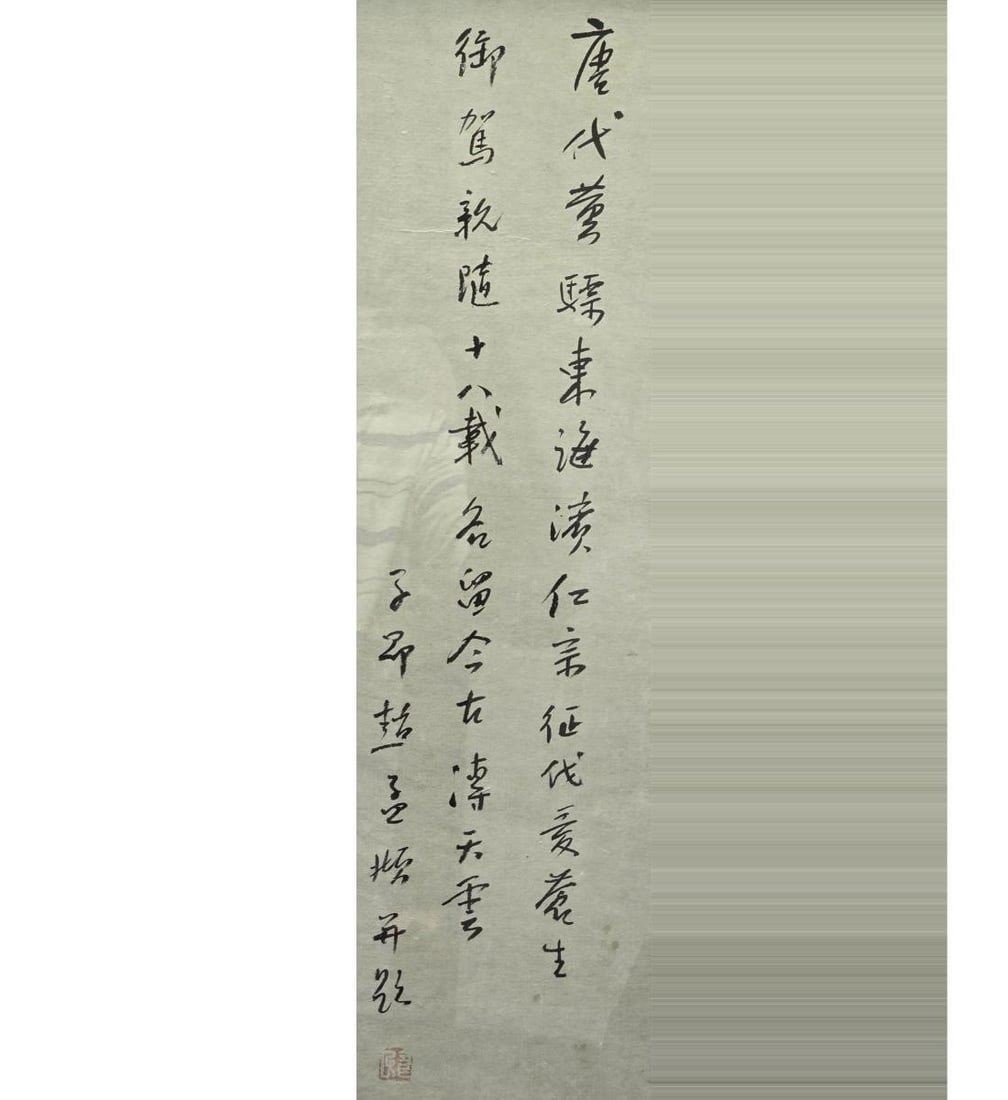 唐代黄驃東海濱仁宗征伐爱蒼生
御駕親隨十八載名留今古溥天雲
子昂趙孟頫并题